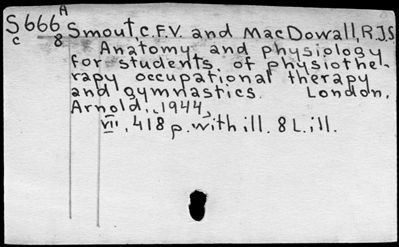 A
S666 Smout, C.F.V. and MacDowall, R.J.S.
c 8 Anatomy and physiology
for students of physiothe-
rapy occupational therapy
and gymnastics. London,
Arnold, 1944.
VII, 418 p. with ill. 8 L. ill.